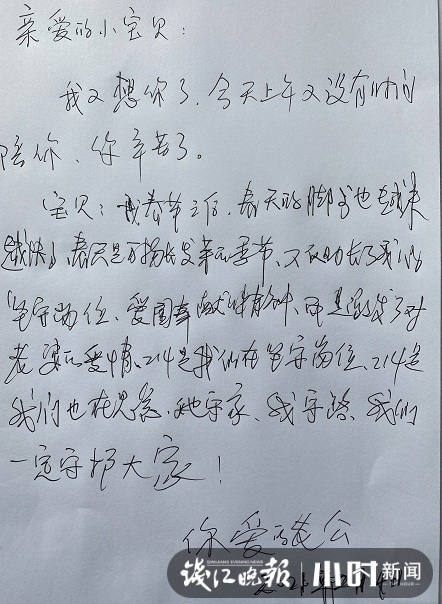 亲爱的小宝贝：
我又想你了，今天上午又没有时间
陪你、你辛苦了。
宝贝：春节之后，春天的脚步也越来
越快，春天是万物生发的季节、不仅助长了我们
坚守岗位、爱国奉献的精神，而是激发了对
老婆的爱情。214是我们在坚守岗位、214是
我们也在思念，她守家、我守路、我们
一定守护大家！
你爱的老公
钱江晚报
QIANJIANG EVENING NEWS
小时新闻
24-HOUR